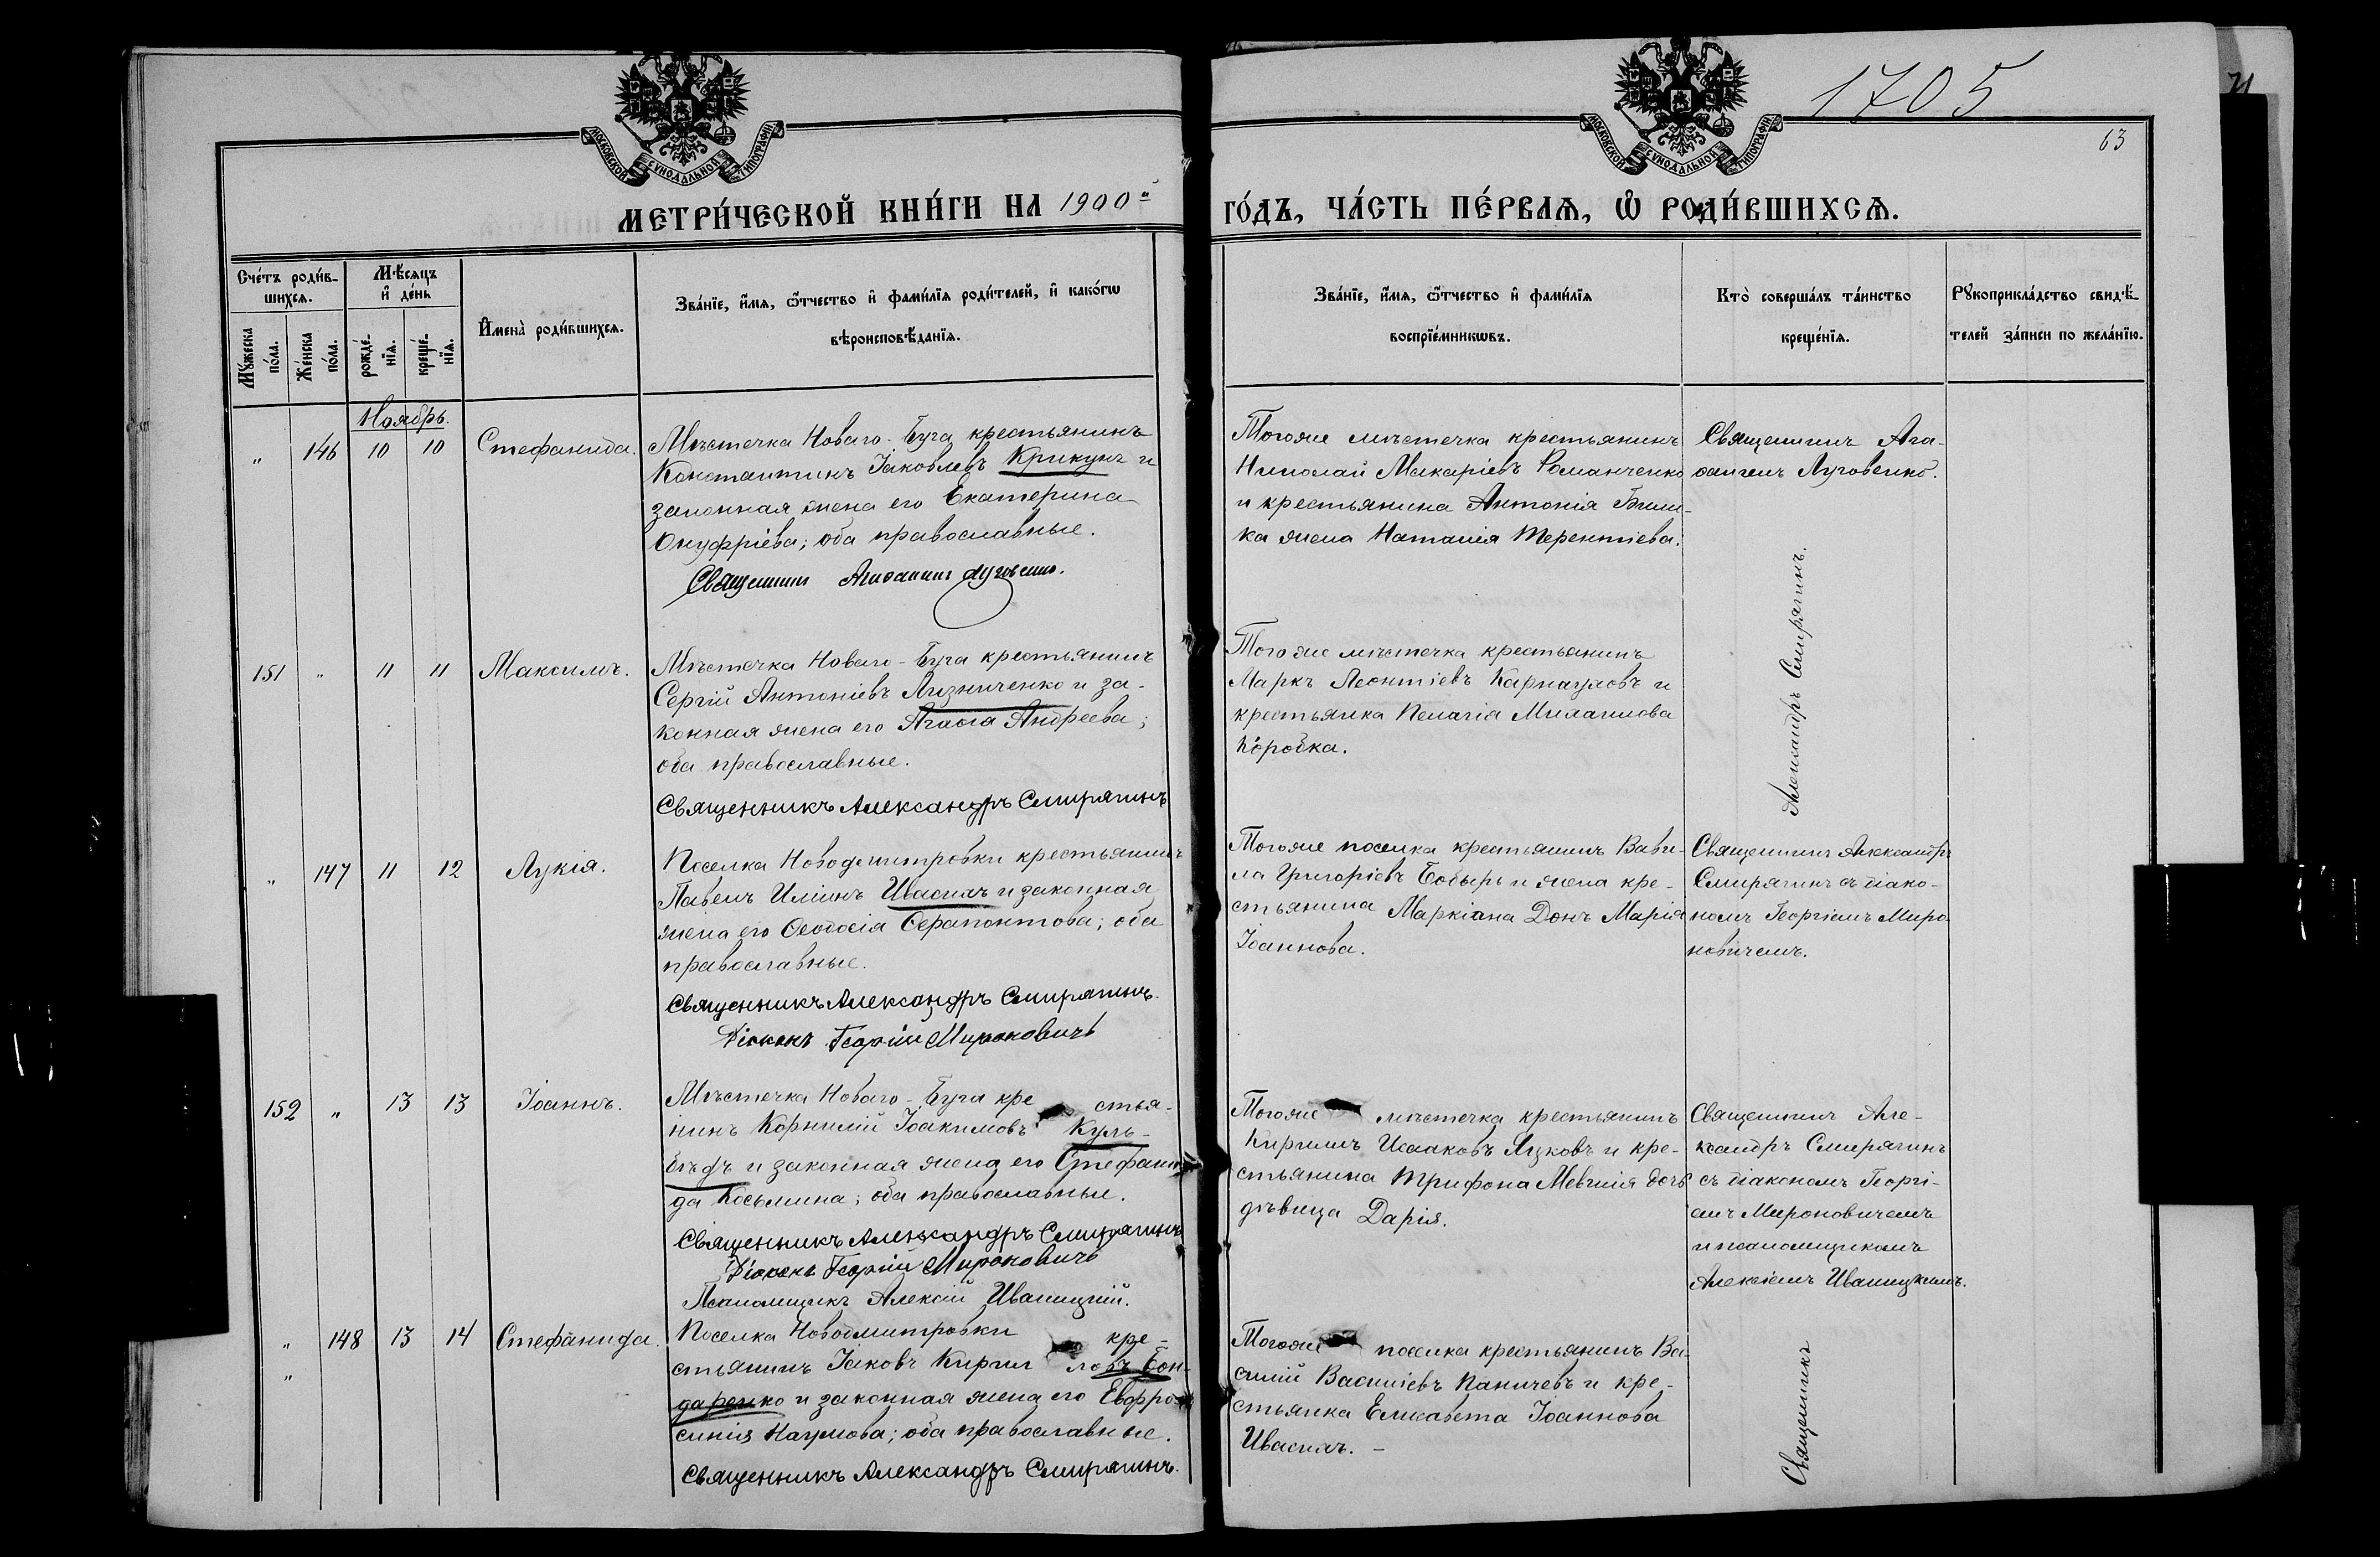 1705
63
МОСКОВСКОЙ СУНОДАЛЬНОЙ ТИПОГРАФІИ
МОСКОВСКОЙ СУНОДАЛЬНОЙ ТИПОГРАФІИ
МЕТРИ́ЧЕСКОЙ КНИ́ГИ НА 1900й
ГО́ДЪ, ЧА́СТЬ ПЕ́РВАѦ, Ѡ҆ РОДИ́ВШИХСѦ.
Сче́тъ роди́в-
шихсѧ.
Мꙋ́жеска по́ла.
Же́нска по́ла.
Мѣ́сѧцъ
и҆ де́нь
рожде́-
нїѧ.
креще́-
нїѧ.
И҆мена̀ роди́вшихсѧ.
Зва́нїе, и҆́мѧ, ѻ҆́тчество и҆ фами́лїѧ роди́телей, и҆ како́гѡ
вѣроисповѣ́данїѧ.
Зва́нїе, и҆́мѧ, ѻ҆́тчество и҆ фами́лїѧ
воспрїе́мникѡвъ.
Кто̀ соверша́лъ та́инство
креще́нїѧ.
Рꙋкоприкла́дство свидѣ́-
телей за́писи по жела́нїю.
Ноябрь.
„ 146 10 10 Стефанида.
Мѣстечка Новаго-Буга крестьянинъ
Константинъ Іаковлевъ Крикунъ и
законная жена его Екатерина
Онуфріева; оба православные.
Священникъ Агаѳангелъ Луговенко.
Тогоже мѣстечка крестьянинъ
Николай Макаріевъ Романченко
и крестьянина Антонія
ка жена Наталія Терентіева.
Священникъ Ага-
ѳангелъ Луговенко.
151 „ 11 11 Максимъ.
Мѣстечка Новаго-Буга крестьянинъ
Сергій Антоніевъ Лизниченко и за-
конная жена его Агаѳія Андреева;
оба православные.
Священникъ Александръ Смирягинъ
Тогоже мѣстечка крестьянинъ
Маркъ Леонтіевъ Карнауховъ и
крестьянка Пелагія Михаилова
Коробка.
Александръ Смирягинъ.
„ 147 11 12 Лукія.
Поселка Новодмитровки крестьянинъ
Павелъ Иліинъ Ивасихъ и законная
жена его Ѳеодосія Ѳерапонтова; оба
православные.
Священникъ Александръ Смирягинъ.
Діаконъ Георгій Мироновичъ
Тогоже поселка крестьянинъ Вави-
ла Григоріевъ Бобырь и жена кре-
стьянина Маркіана Донъ Марія
Іоаннова.
Священникъ Александръ
Смирягинъ съ діако-
номъ Георгіемъ Миро
новичемъ.
152 „ 13 13 Іоаннъ.
Мѣстечка Новаго-Буга кре стья-
нинъ Корнилій Іоакимовъ Куль-
бѣдъ и законная жена его Стефани
да Косьмина; оба православные.
Священникъ Александръ Смирягинъ
Діаконъ Георгій Мироновичъ
Псаломщикъ Алексій Иваницкій.
Тогоже мѣстечка крестьянинъ
Кириллъ Исааковъ Яцковъ и кре-
стьянина Трифона дочь
дѣвица Дарія.
Священникъ Але-
ксандръ Смирягинъ
съ діакономъ Георгі-
емъ Мироновичемъ
и псаломщикомъ
Алексіемъ Иваницкимъ.
„ 148 13 14 Стефанида.
„
Поселка Новодмитровки кре-
стьянинъ Іаковъ Кирил ловъ Бон-
даренко и законная жена его Евфро-
синія Наумова; оба православные.
Священникъ Александръ Смирягинъ.
Тогоже поселка крестьянинъ Ва-
силій Василіевъ Паничевъ и кре-
стьянка Елисавета Іоаннова
Ивасихъ. –
Священникъ